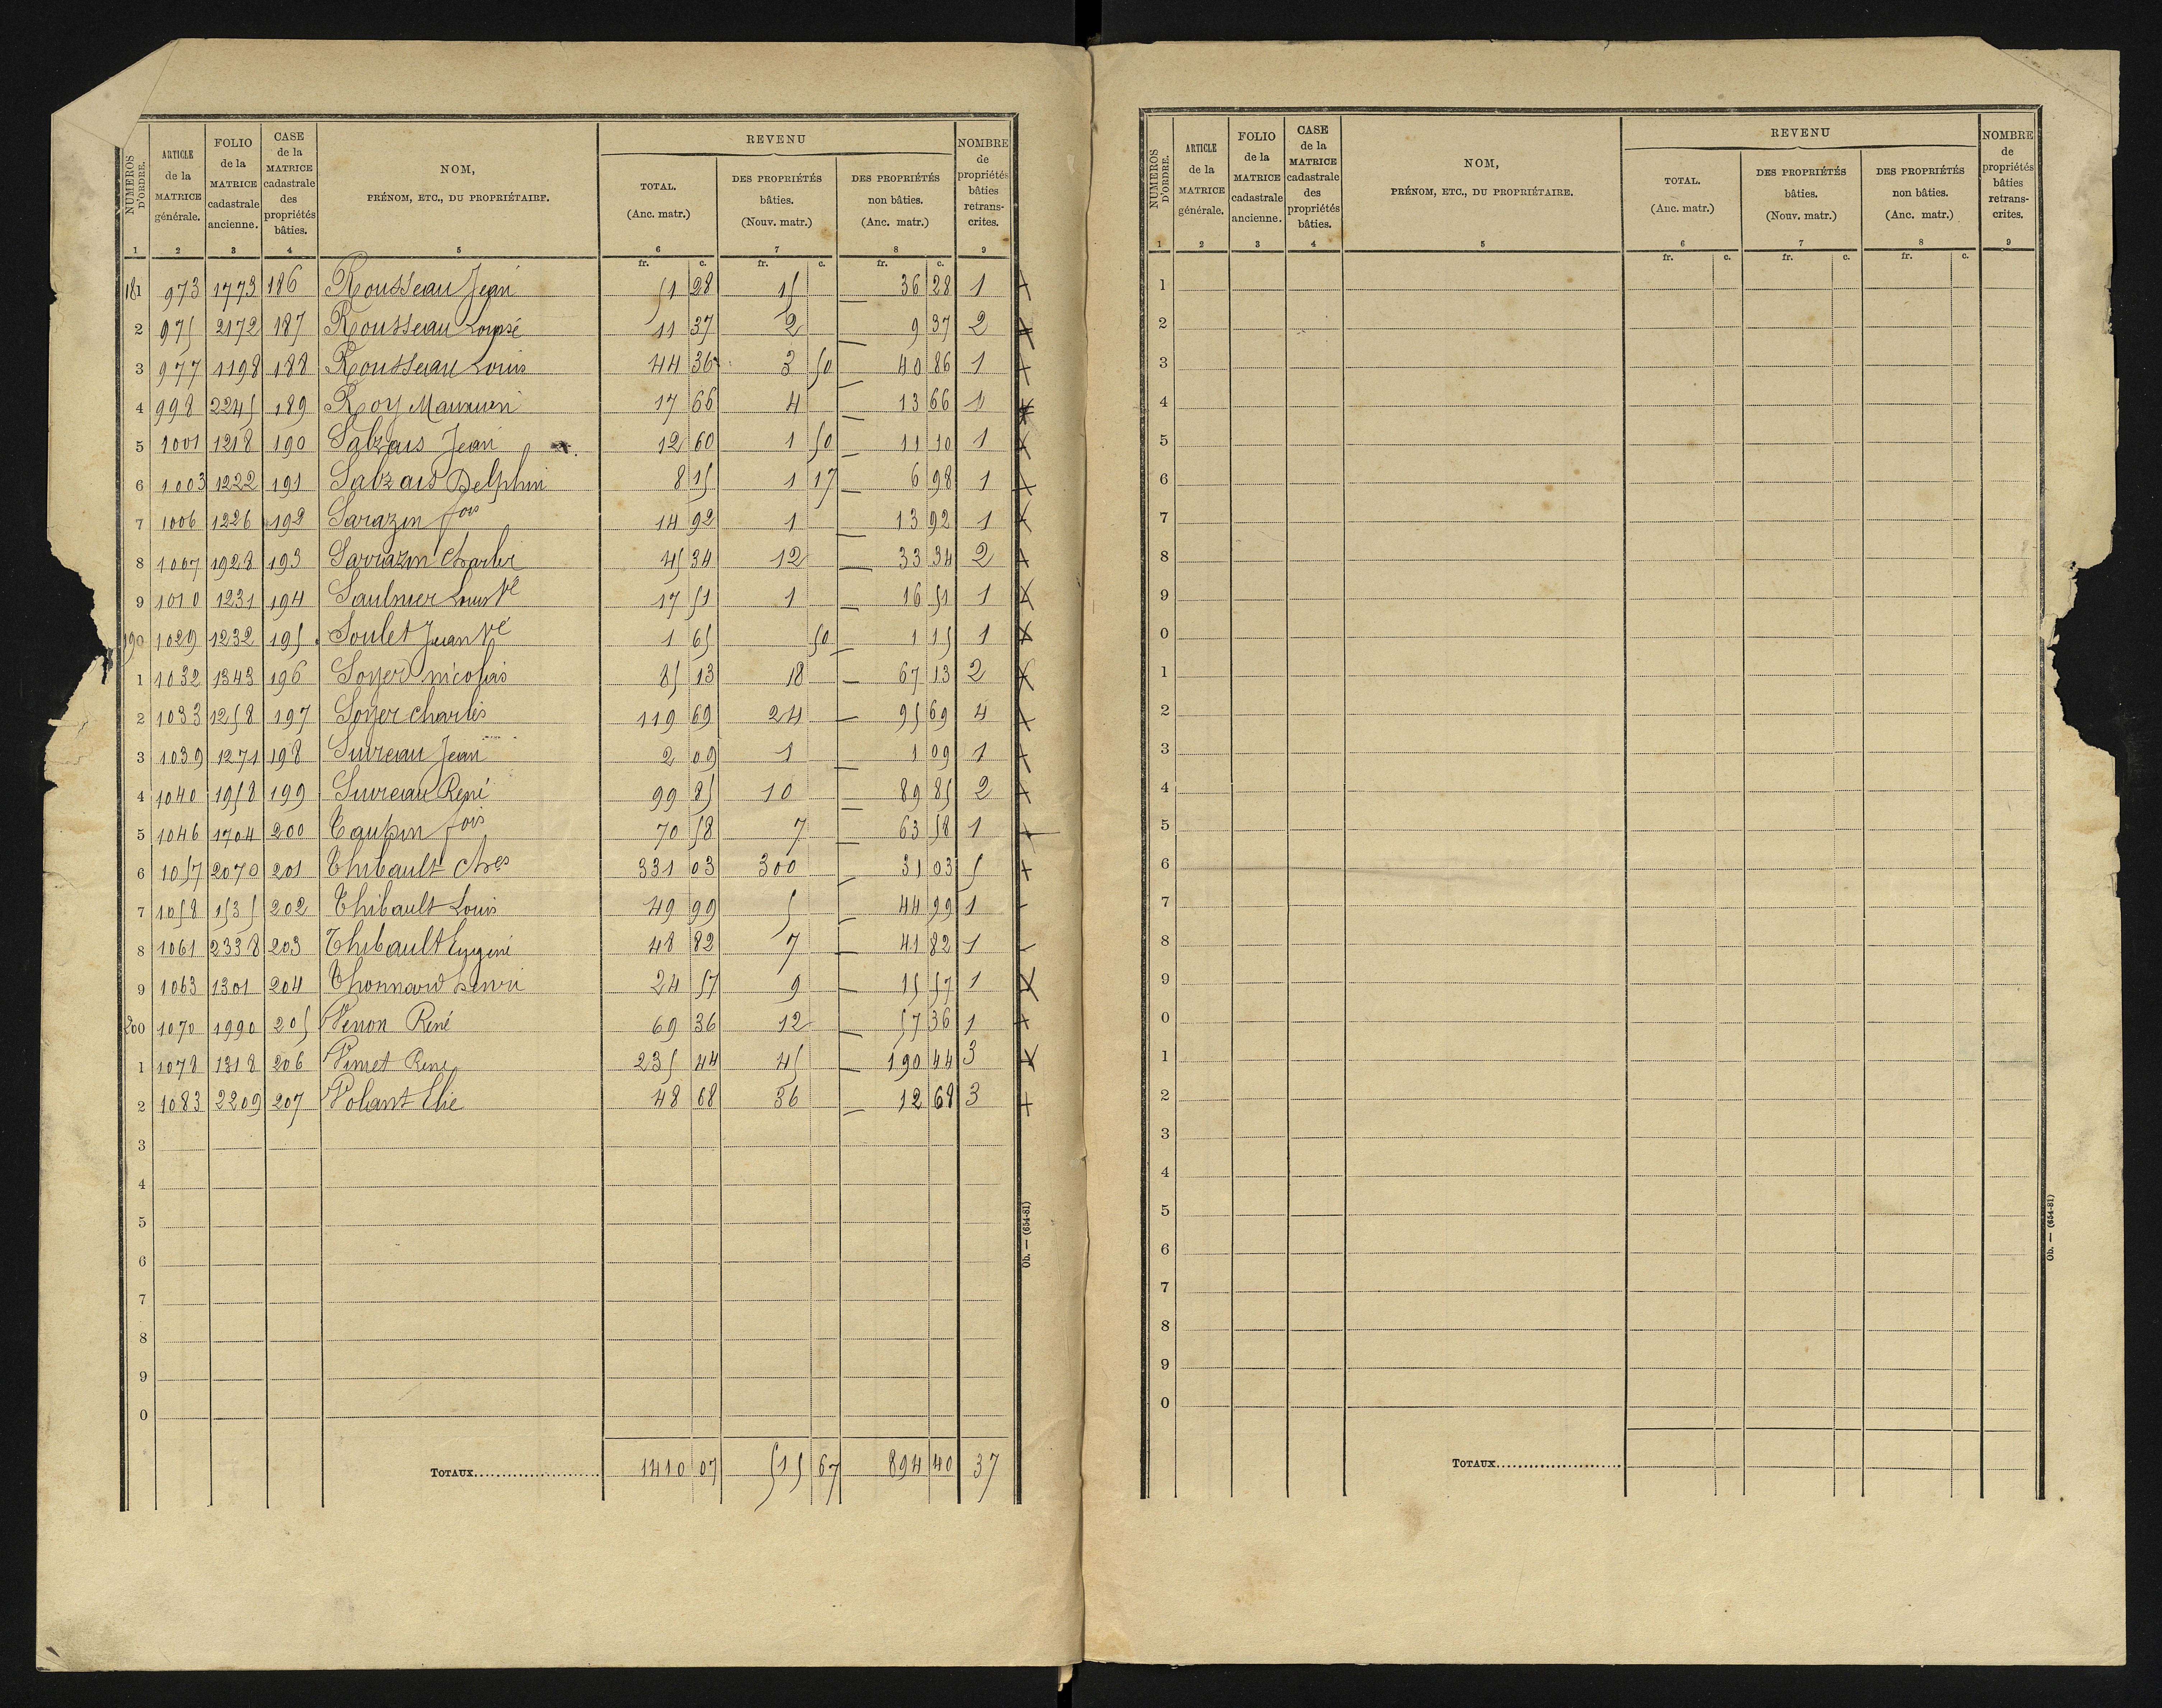 NUMÉROS D'ORDRE. ARTICLE de la MATRICE générale. FOLIO de la MATRICE cadastrale ancienne. CASE de la MATRICE cadastrale des propriétés bâties. NOM, PRÉNOM, ETC., DU PROPRIÉTAIRE. REVENU TOTAL. (Anc. matr.) DES PROPRIÉTÉS bâties. (Nouv. matr.) DES PROPRIÉTÉS non bâties. (Anc. matr.) NOMBRE de propriétés bâties retrans- crites.
1 2 3 4 5 6 7 8 9
fr. c. fr. c. fr. c.
181 973 1773 186 Rousseau Jean 51 28 15 36 28 1
2 975 2172 187 Rousseau 11 37 2 9 37 2
3 977 1198 188 Rousseau Louis 44 36 3 50 40 86 1
4 998 2245 189 Roy 17 66 4 13 66 1
5 1001 1218 190 Salzais Jean 12 60 1 50 11 10 1
6 1003 1222 191 Salzais Delphin 8 15 1 17 6 98 1
7 1006 1226 192 Sarazin fois 14 92 1 13 92 1
8 1007 1928 193 Sarrazin Charles 45 34 12 33 34 2
9 1010 1231 194 Saulnier Louis Ve 17 51 1 16 51 1
190 1029 1232 195 Soulet Jean Ve 1 65 50 1 15 1
1 1032 1343 196 Soyer nicolas 85 13 18 67 13 2
2 1033 1258 197 Soyer charles 119 69 24 95 69 4
3 1039 1271 198 Sureau Jean 2 09 1 1 09 1
4 1040 1958 199 Sureau René 99 85 10 89 85 2
5 1046 1704 200 Taupin fois 70 58 7 63 58 1
6 1057 2070 201 Thibault Ches 331 03 300 31 03 5
7 1058 1535 202 Thibault Louis 49 99 5 44 99 1
8 1061 2338 203 Thibault Eugène 48 82 7 41 82 1
9 1063 1301 204 Thonnard henri 24 57 9 15 57 1
200 1070 1990 205 Venon René 69 36 12 57 36 1
1 1078 1318 206 Vinet Rene 235 44 45 190 44 3
2 1083 2209 207 Volant Elie 48 68 36 12 68 3
3
4
5
6
7
8
9
0
TOTAUX 1410 07 515 67 894 40 37
Ob. — (654-81)
NUMÉROS D'ORDRE. ARTICLE de la MATRICE générale. FOLIO de la MATRICE cadastrale ancienne. CASE de la MATRICE cadastrale des propriétés bâties. NOM, PRÉNOM, ETC., DU PROPRIÉTAIRE. REVENU TOTAL. (Anc. matr.) DES PROPRIÉTÉS bâties. (Nouv. matr.) DES PROPRIÉTÉS non bâties. (Anc. matr.) NOMBRE de propriétés bâties retrans- crites.
1 2 3 4 5 6 7 8 9
fr. c. fr. c. fr. c.
1
2
3
4
5
6
7
8
9
0
1
2
3
4
5
6
7
8
9
0
1
2
3
4
5
6
7
8
9
0
TOTAUX
Ob. — (654-81)